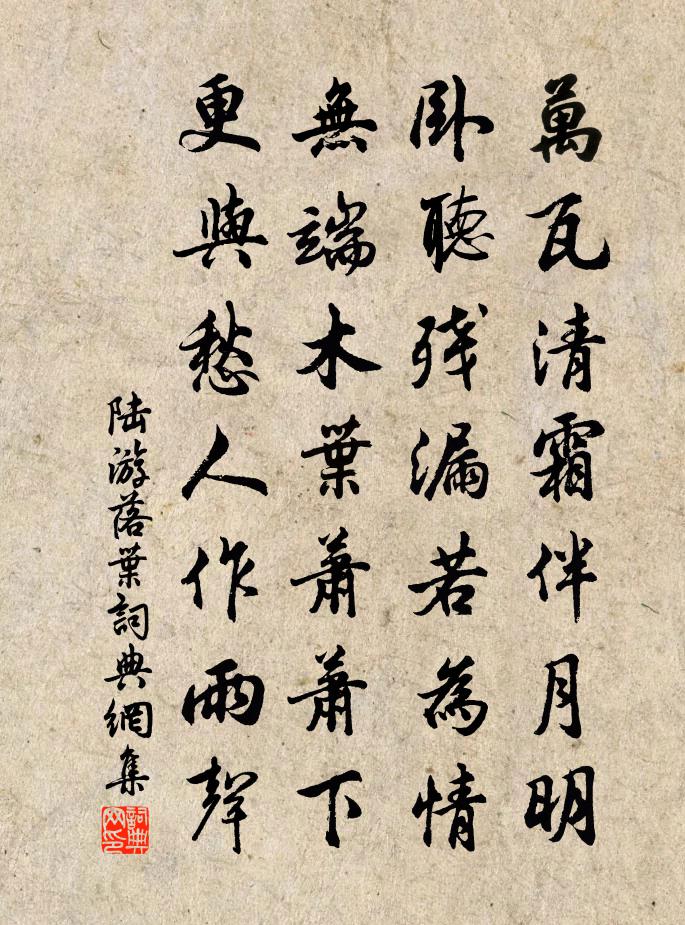 萬瓦清霜伴月明
卧聽殘漏若為情
無端木葉蕭蕭下
更與愁人作雨聲
陆游落葉詞典網集
詞典網印